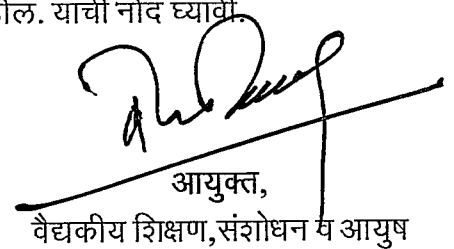 ील. याची नोंद घ्यावी.
आयुक्त,
वैद्यकीय शिक्षण,संशोधन व आयुष